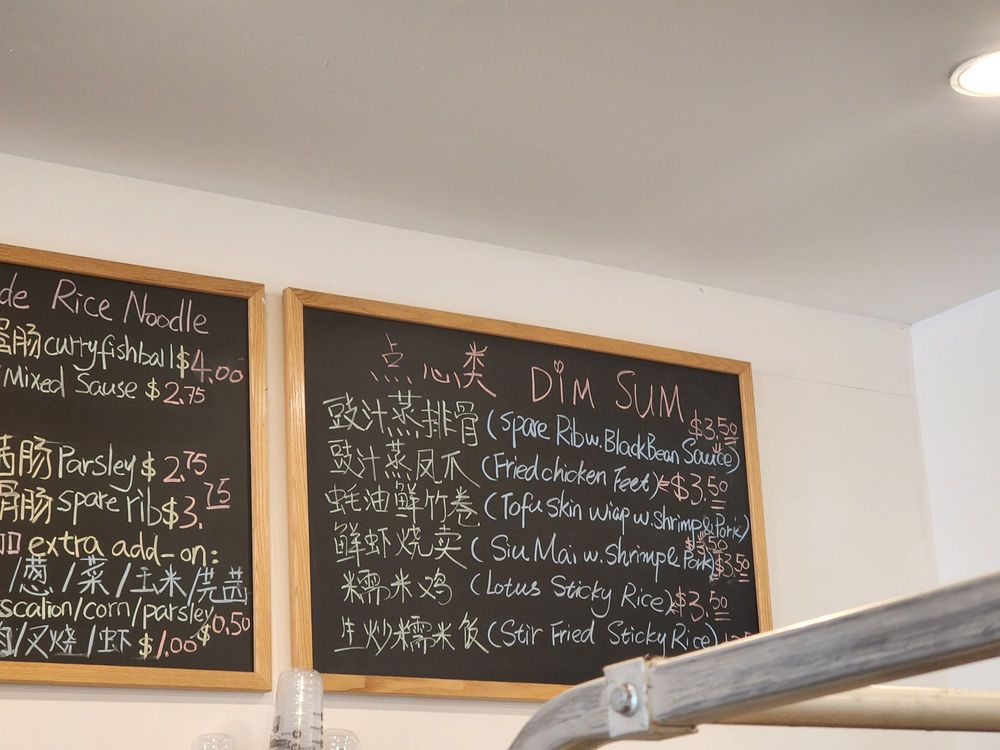 de Rice Noodle
蛋肠 curryfishball $4.00
Mixed Sause $2.75
茜肠 Parsley $2.75
骨肠 spare rib $3.75
加 extra add-on:
/葱/菜/玉米/芫茜
scalion/corn/parsley $0.50
肉/叉烧/虾 $1.00
点心类 DiM SUM
豉汁蒸排骨 (Spare Rib w. BlackBean Sauce) $3.50
豉汁蒸凤爪 (Fried chicken Feet) $3.50
蚝油鲜竹卷 (Tofu skin wrap w. shrimp & Pork) $3.50
鲜虾烧卖 (Siu Mai w. Shrimp & Pork) $3.50
糯米鸡 (Lotus Sticky Rice) $3.50
生炒糯米饭 (Stir Fried Sticky Rice)